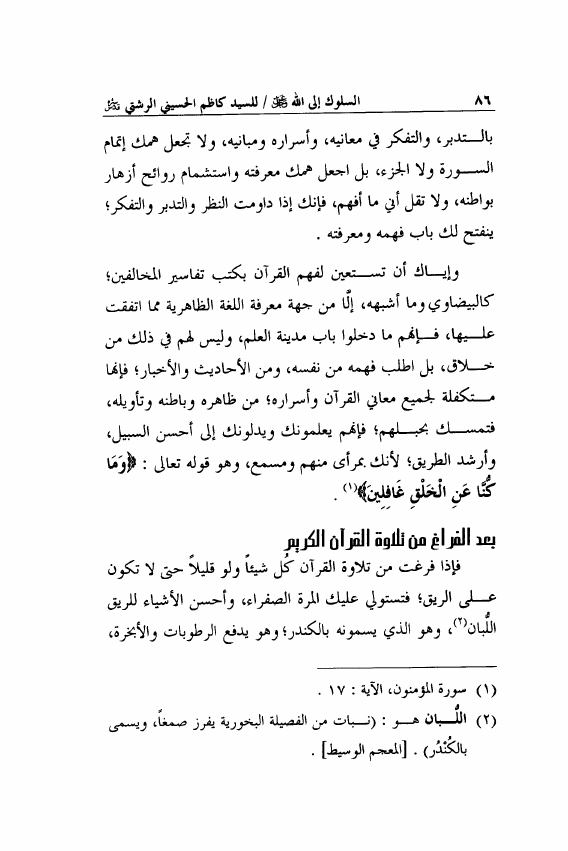 ٨٦ السلوك إلى الله ﷻ / للسيد كاظم الحسيني الرشتي
بالـــتدبر، والتفكر في معانيه، وأسراره ومبانيه، ولا تجعل همك إتمام
الســـورة ولا الجزء، بل اجعل همك معرفته واستشمام روائح أزهار
بواطنه، ولا تقل أني ما أفهم، فإنك إذا داومت النظر والتدبر والتفكر؛
ينفتح لك باب فهمه ومعرفته .
وإيـــاك أن تســـتعين لفهم القرآن بكتب تفاسير المخالفين؛
كالبيضاوي وما أشبهه، إلَّا من جهة معرفة اللغة الظاهرية مما اتفقت
علـــيها، فـــإنهم ما دخلوا باب مدينة العلم، وليس لهم في ذلك من
خـــلاق، بل اطلب فهمه من نفسه، ومن الأحاديث والأخبار؛ فإنها
مـــتكفلة لجميع معاني القرآن وأسراره؛ من ظاهره وباطنه وتأويله،
فتمســـك بحبـــلهم؛ فإنهم يعلمونك ويدلونك إلى أحسن السبيل،
وأرشد الطريق؛ لأنك بمرأى منهم ومسمع، وهو قوله تعالى : ﴿وَمَا
كُنَّا عَنِ الْخَلْقِ غَافِلِينَ﴾(١) .
بعد الفراغ من تلاوة القرآن الكريم
فإذا فرغت من تلاوة القرآن كُل شيئاً ولو قليلاً حتى لا تكون
عـــلى الريق؛ فتستولي عليك المرة الصفراء، وأحسن الأشياء للريق
اللُّبان(٢)، وهو الذي يسمونه بالكندر؛ وهو يدفع الرطوبات والأبخرة،
(١) سورة المؤمنون، الآية : ١٧ .
(٢) اللُّـــبان هـــو : (نـــبات من الفصيلة البخورية يفرز صمغاً، ويسمى
بالكُنْدُر) . [المعجم الوسيط] .